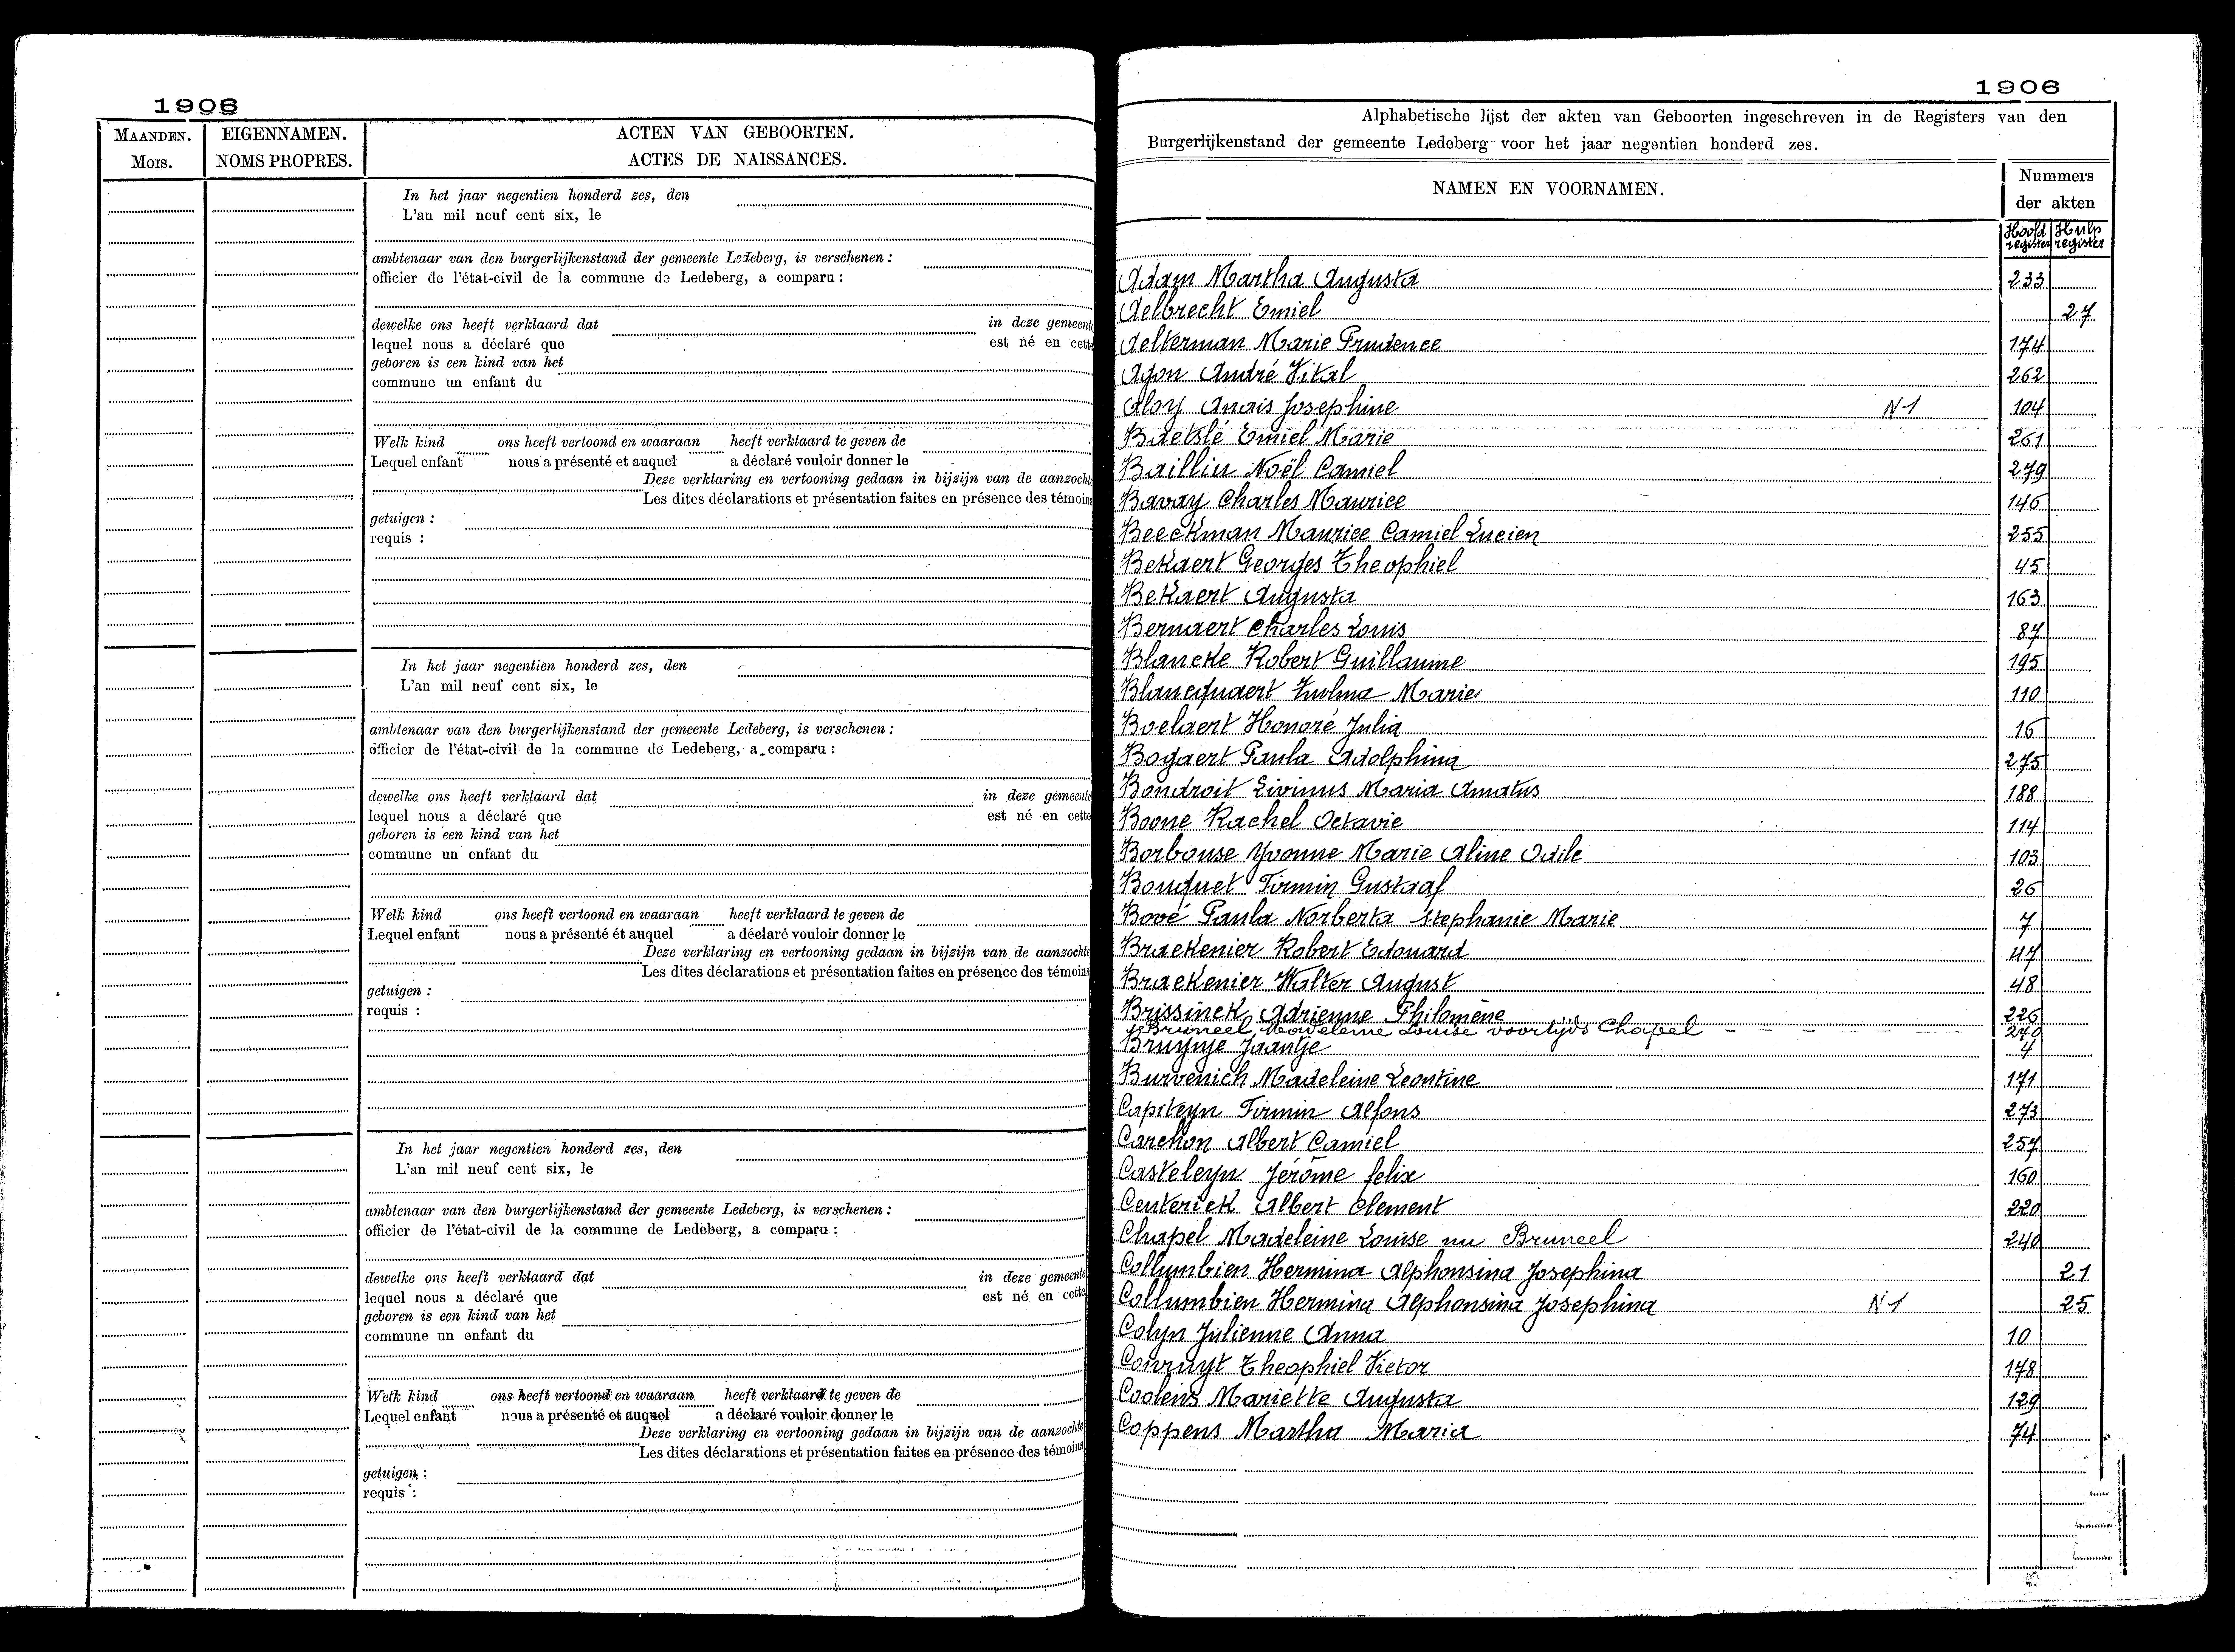 1906
MAANDEN.
Mois.
EIGENNAMEN.
NOMS PROPRES.
ACTEN VAN GEBOORTEN.
ACTES DE NAISSANCES.
In het jaar negentien honderd zes, den
L'an mil neuf cent six, le
ambtenaar van den burgerlijkenstand der gemeente Ledeberg, is verschenen :
officier de l'état-civil de la commune de Ledeberg, a comparu :
dewelke ons heeft verklaard dat in deze gemeente
lequel nous a déclaré que est né en cette
geboren is een kind van het
commune un enfant du
Welk kind ons heeft vertoond en waaraan heeft verklaard te geven de
Lequel enfant nous a présenté et auquel a déclaré vouloir donner le
Deze verklaring en vertooning gedaan in bijzijn van de aanzochte
Les dites déclarations et présentation faites en présence des témoins
getuigen :
requis :
In het jaar negentien honderd zes, den
L'an mil neuf cent six, le
ambtenaar van den burgerlijkenstand der gemeente Ledeberg, is verschenen :
officier de l'état-civil de la commune de Ledeberg, a comparu :
dewelke ons heeft verklaard dat in deze gemeente
lequel nous a déclaré que est né en cette
geboren is een kind van het
commune un enfant du
Welk kind ons heeft vertoond en waaraan heeft verklaard te geven de
Lequel enfant nous a présenté ét auquel a déclaré vouloir donner le
Deze verklaring en vertooning gedaan in bijzijn van de aanzochte
Les dites déclarations et présentation faites en présence des témoins
getuigen :
requis :
In het jaar negentien honderd zes, den
L'an mil neuf cent six, le
ambtenaar van den burgerlijkenstand der gemeente Ledeberg, is verschenen :
officier de l'état-civil de la commune de Ledeberg, a comparu :
dewelke ons heeft verklaard dat in deze gemeente
lequel nous a déclaré que est né en cette
geboren is een kind van het
commune un enfant du
Welk kind ons heeft vertoond en waaraan heeft verklaard te geven de
Lequel enfant nous a présenté et auquel a déclaré vouloir donner le
Deze verklaring en vertooning gedaan in bijzijn van de aanzochte
Les dites déclarations et présentation faites en présence des témoins
getuigen :
requis :
1906
Alphabetische lijst der akten van Geboorten ingeschreven in de Registers van den
Burgerlijkenstand der gemeente Ledeberg voor het jaar negentien honderd zes.
NAMEN EN VOORNAMEN.
Nummers
der akten
Hoofd register Hulp register
Adam Martha Augusta 233
Aelbrecht Emiel 27
Aelterman Marie Prudence 174
Agon André Vital 262
Aloy Anais Josephine N1 104
Baetslé Emiel Marie 261
Baillin Noël Camiel 279
Bavay Charles Maurice 146
Beeckman Maurice Camiel Lucien 255
Bekaert Georges Theophiel 45
Bekaert Augusta 163
Bernaert Charles Louis 87
Blancke Robert Guillaume 195
Blancquaert Zulma Marie 110
Boelaert Honoré Julia 16
Bogaert Paula Adolphina 275
Bondroit Livinus Maria Amatus 188
Boone Rachel Octavie 114
Borbouse Yvonne Marie Aline Odile 103
Bouquet Firmin Gustaaf 26
Bové Paula Norberta Stephanie Marie 7
Braekenier Robert Edouard 47
Braekenier Walter August 48
Brissinck Adrienne Philomène 226
Bruneel Madeleine Louise voortijds Chapel 240
Bruynje Jaantje 4
Burvenich Madeleine Leontine 171
Capiteyn Firmin Alfons 273
Carchon Albert Camiel 257
Casteleyn Jérôme felix 160
Centerick Albert Clement 220
Chapel Madeleine Louise nu Bruneel 240
Collumbien Hermina Alphonsina Josephina 21
Collumbien Hermina Alphonsina Josephina N1 25
Colyn Julienne Anna 10
Conruyt Theophiel Victor 178
Coolens Mariette Augusta 129
Coppens Martha Maria 74